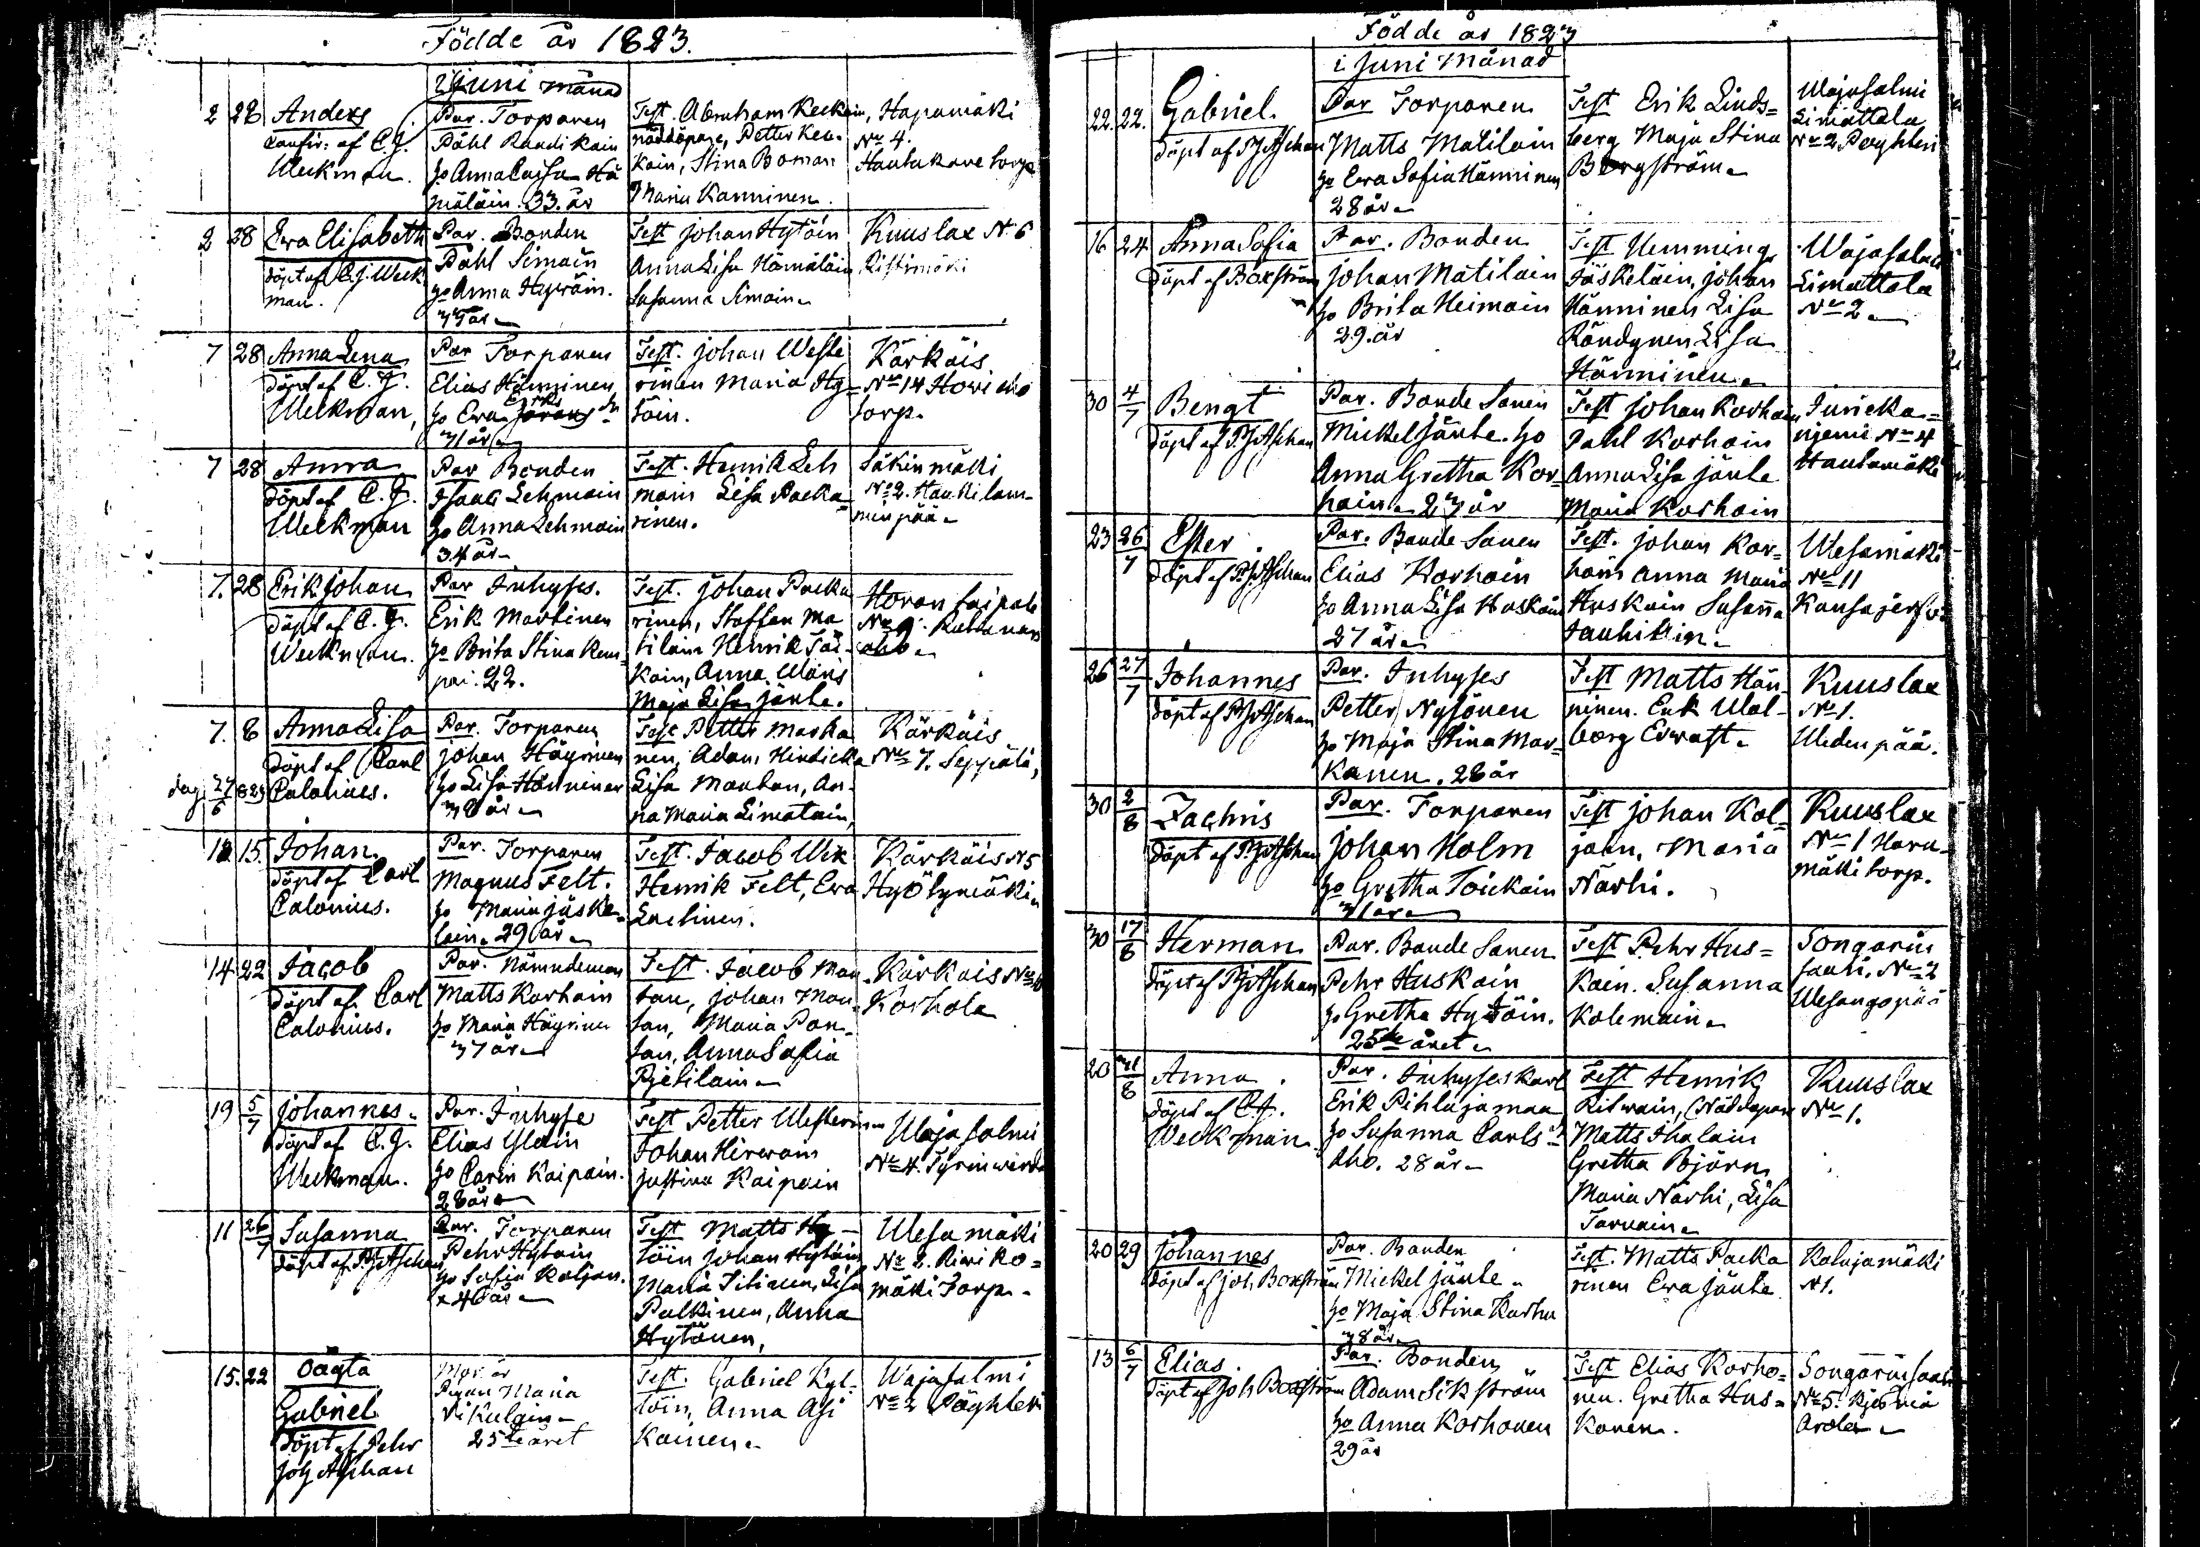 Födde år 1823.
i Juni Månad
2 28 Anders
Confir: af C.J.
Weckman.
Par. Torparen
Påhl Randikain
ho Anna Caisa Hä
mäläin. 33. år
Test. Abraham Keckäin,
nöddöpare, Petter Kec-
kain, Stina Boman
Maria Kanninen.
Hapamäki
No 4.
Hautakane torp
2 28 Eva Elisabeth
döpt af C.J. Weck
man.
Par. Bonden
Påhl Simain
ho Anna Hyväin.
Test Johan Hytöin
Anna Lisa Hämäläin
Susanna Simain
Kuuslax No 6
Ristimäki
7 28 Anna Lena
döpt af C. J.
Weckman,
Par Torparen
Elias Hänninen
ho Eva
31 år
Test. Johan Weste
rinen Maria Hy-
töin.
Kärkäis
No 14
torp.
7 28 Anna
döpt af C. J.
Weckman
Par Bonden
Isaac Lehmain
ho Anna Lehmain
34 år
Test. Henrik Leh
main Lisa Packa-
rinen.
Säkinmäki
No 2. Haukilam-
min pää
7. 28 Erik Johan
döpt af C. J.
Weckman.
Par Inhyses.
Erik Martinen
ho Brita Stina Kem-
pai. 22.
Test. Johan Packa
rinen, Staffan Ma
tilain Henrik Toi-
kain, Anna
Maja Lisa Jänte.
No 9.
7. 8 Anna Lisa
döpt af Carl
Calonius.
dag 27/6 823
Par. Torparen
Johan Häyrinen
ho Lisa Hänninen
38 år
Test Petter Marka
nen, Adam Hindicka
Lisa Mantan, An-
na Maria Limatain,
Kärkäis
No 7. Seppälä,
12 15. Johan
döpt af Carl
Calonius.
Par. Torparen
Magnus Felt.
ho Maria Jäske-
läin. 29 år
Test. Jacob Wek
Henrik Felt, Eva
Laetinen.
Kärkäis No 5
Hyölymäki
14 22 Jacob
döpt af Carl
Calonius.
Par. Nämndeman
Matts Korhain
ho Maria Häyrinen
37 år
Test. Jacob Man
tan, Johan Man-
tan, Maria Pan-
tan, Anna Safia
Pjetilain
Kärkäis
Korhola
19 5/7 Johannes.
döpt af C. J.
Weckman.
Par. Inhyse
Elias Yläin
ho Carin Kaipain.
28 år
Test Petter Westerinen
Johan Hirwain
Justina Kaipain
Waja salmi
No 4.
11 26/7 Susanna
döpt af P.J. Aschan
Par. Torparen
Pehr Hytöin
ho Sofia Koljan.
40 år
Test Matts Hy-
töin Johan Hytöin
Maria Titinen, Lisa
Pulkinen, Anna
Hytönen,
Wesa mäki
No 2.
mäki Torp.
15. 22 Oägta
Gabriel
döpt af Pehr
Joh Aschan
Mor är
Pigan Maria
Nikulain
25te året
Test. Gabriel Kyl-
löin, Anna Asi
kainen
Wajasalmi
No 2 Päyhteri
Födde år 1823
i Juni Månad
22. 22. Gabriel
döpt af P.J. Aschan
Par Torparen
Matts Matilain
ho Eva Sofia Hänninen
28 år
Test Erik Linds-
berg Maja Stina
Bergström
Wajasalmi
Limattala
No 2 Peryhteri
16 24 Anna Sofia
döpt af Boxström
Par. Bonden
Johan Matilain
ho Brita Heimain
29. år
Test Hemming
Jäskeläin, Johan
Hänninen Lisa
Röndynen Lisa
Hänninen
Wajasalmi
Limattala
No 2
30 4/7 Bengt
döpt af P.J. Aschan
Par. Bonde Sonen
Mickel Jänte. ho
Anna Gretha Kor-
hain 23 år
Test Johan Korhain
Pahl Korhain
Anna Lisa Jänte
Maria Korhain
niemi No 4
Hautamäki
23 26/7 Ester.
döpt af P.J. Aschan
Par. Bonde Sonen
Elias Korhain
ho Anna Lisa Huskain
27 år
Test. Johan Kor-
hain Anna Maria
Huskain Susanna
Wesamäki
No 11
26 27/7 Johannes
döpt af P.J. Aschan
Par. Inhyses
Petter Nysönen
ho Maja Stina Mar-
kanen. 28 år
Test Matts Hän
ninen. Erik Wal-
borg
Kuuslax
No 1.
Weden pää.
30 2/8 Zachris
döpt af P.J. Aschan
Par. Torparen
Johan Holm
ho Gretha Toickain
31 år
Test Johan Kol-
jain, Maria
Närhi.
Kuuslax
No 1 Haru-
mäki torp.
30 17/8 Herman
döpt af P.J. Aschan
Par. Bonde Sonen
Pehr Huskain
ho Gretha Hytöin.
25te året
Test Pehr Hus=
kain. Susanna
Kolemain
Songarin
saari. No 2
Wesangopää
20 31/8 Anna.
döpt af C.J.
Weckman
Par. Inhyses Karl
Erik Pihlajamaa
ho Susanna Carls dr
Aho. 28 år
Test Henrik
Ritwain, (Näddöpare
Matts Ihalain
Gretha Björn
Maria Närhi, Lisa
Tarvain
Kuuslax
No 1.
20 29 Johannes
döpt af Joh. Boxström
Par. Bonden
Mickel Jänte
ho Maja Stina Karhu
38 år
Test. Matts Packa
rinen Eva Jänte
Kalajamäki
No 1.
13 6/7 Elias.
döpt af Joh Boxström
Par. Bonden
Adam Sikström
ho Anna Korhonen
29 år
Test Elias Korho-
nen. Gretha Hus-
konen.
Songarinsaari
No 5.